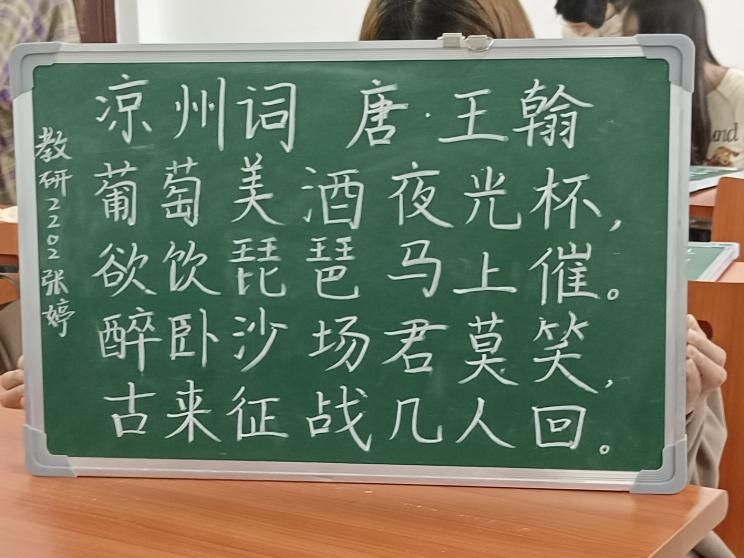 凉州词 唐·王翰
葡萄美酒夜光杯,
欲饮琵琶马上催。
醉卧沙场君莫笑,
古来征战几人回。
教研2202张婷